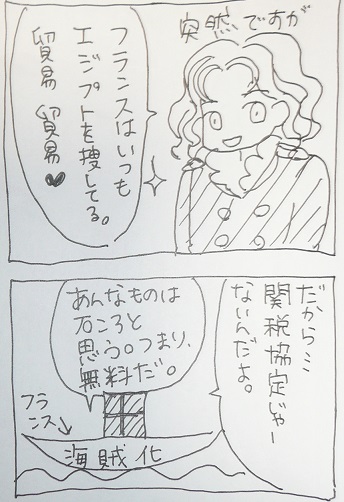 突然ですが
フランスはいつも
エジプトを捜してる。
貿易 貿易♥
だからミミ
関税協定じゃー
ないんだよ。
あんなものは
石ころと
思う。つまり、
無料だ。
フラ
ンス
海賊化